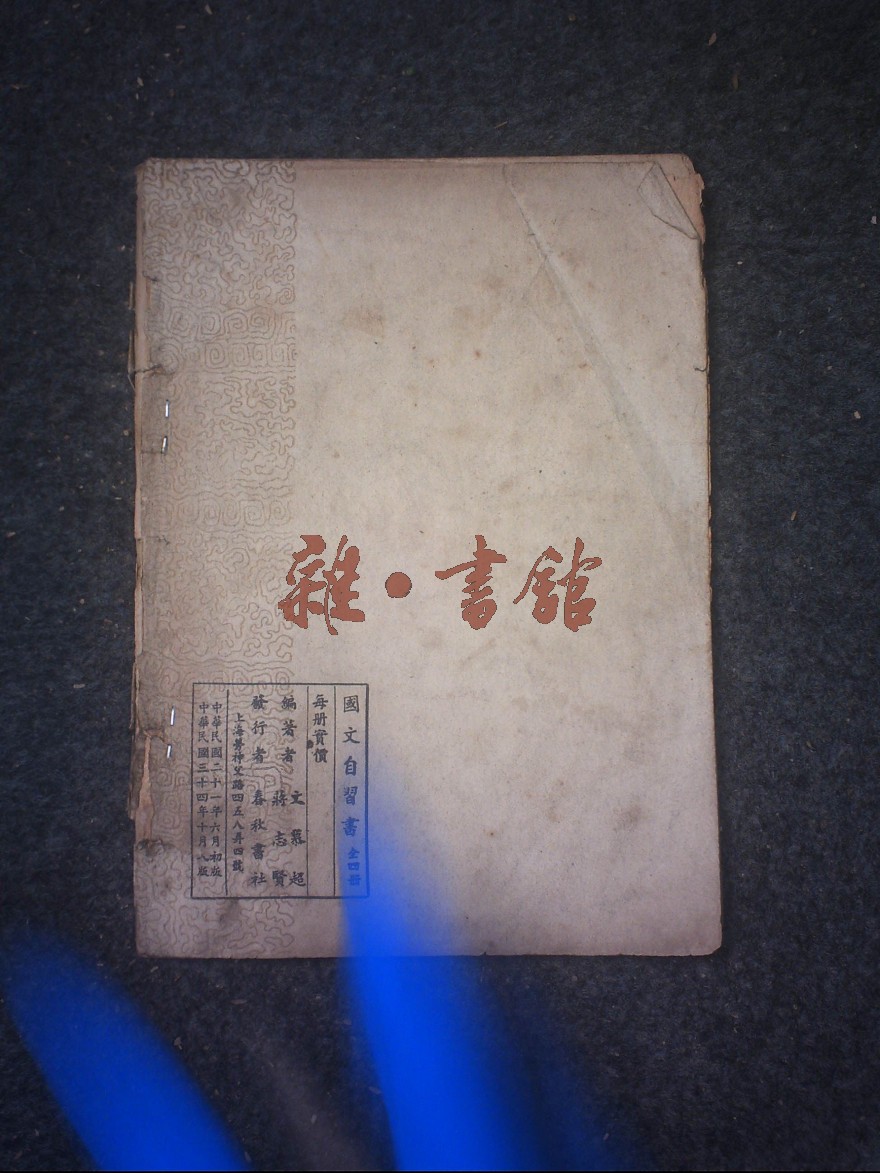 雜·書館
國文自習書 全四冊
每册實價
編著者 文萘超
蔣志賢
發行者 春秋書社
上海勞神父路四五八弄四號
中華民國二十一年六月初版
中華民國三十四年十月八版